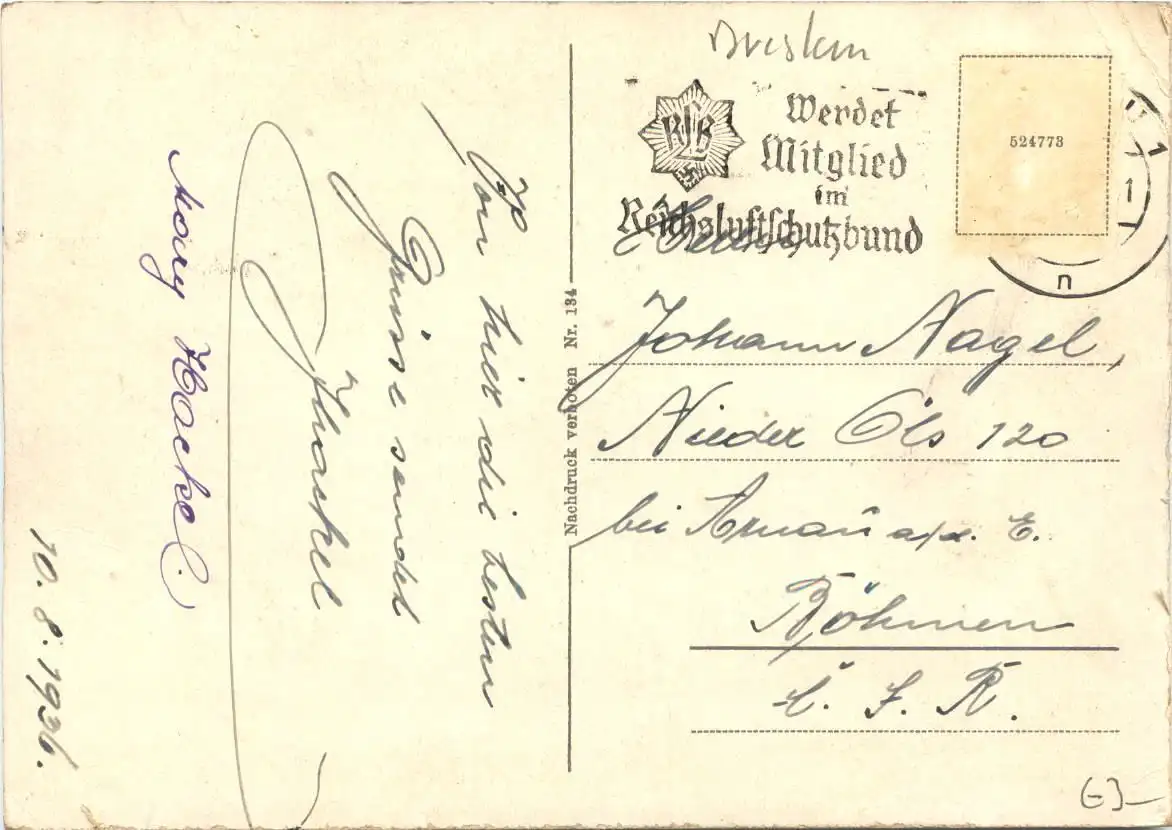 Von hier die besten
Grüsse sendet
Mary Hackel.
10. 8. 1936.
Nachdruck verboten Nr. 134
RLB
Werdet
Mitglied
im
Reichsluftschutzbund
524773
1
1
n
Johann Nagel,
Nieder Öls 120
bei Arnau a/d. E.
Böhmen
Č. S. R.